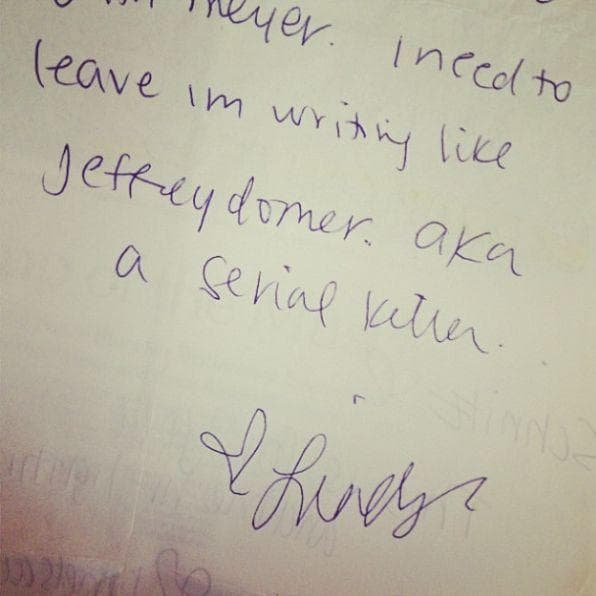 meyer. i need to
leave im writing like
Jeffrey domer. aka
a serial killer.
Lindsy